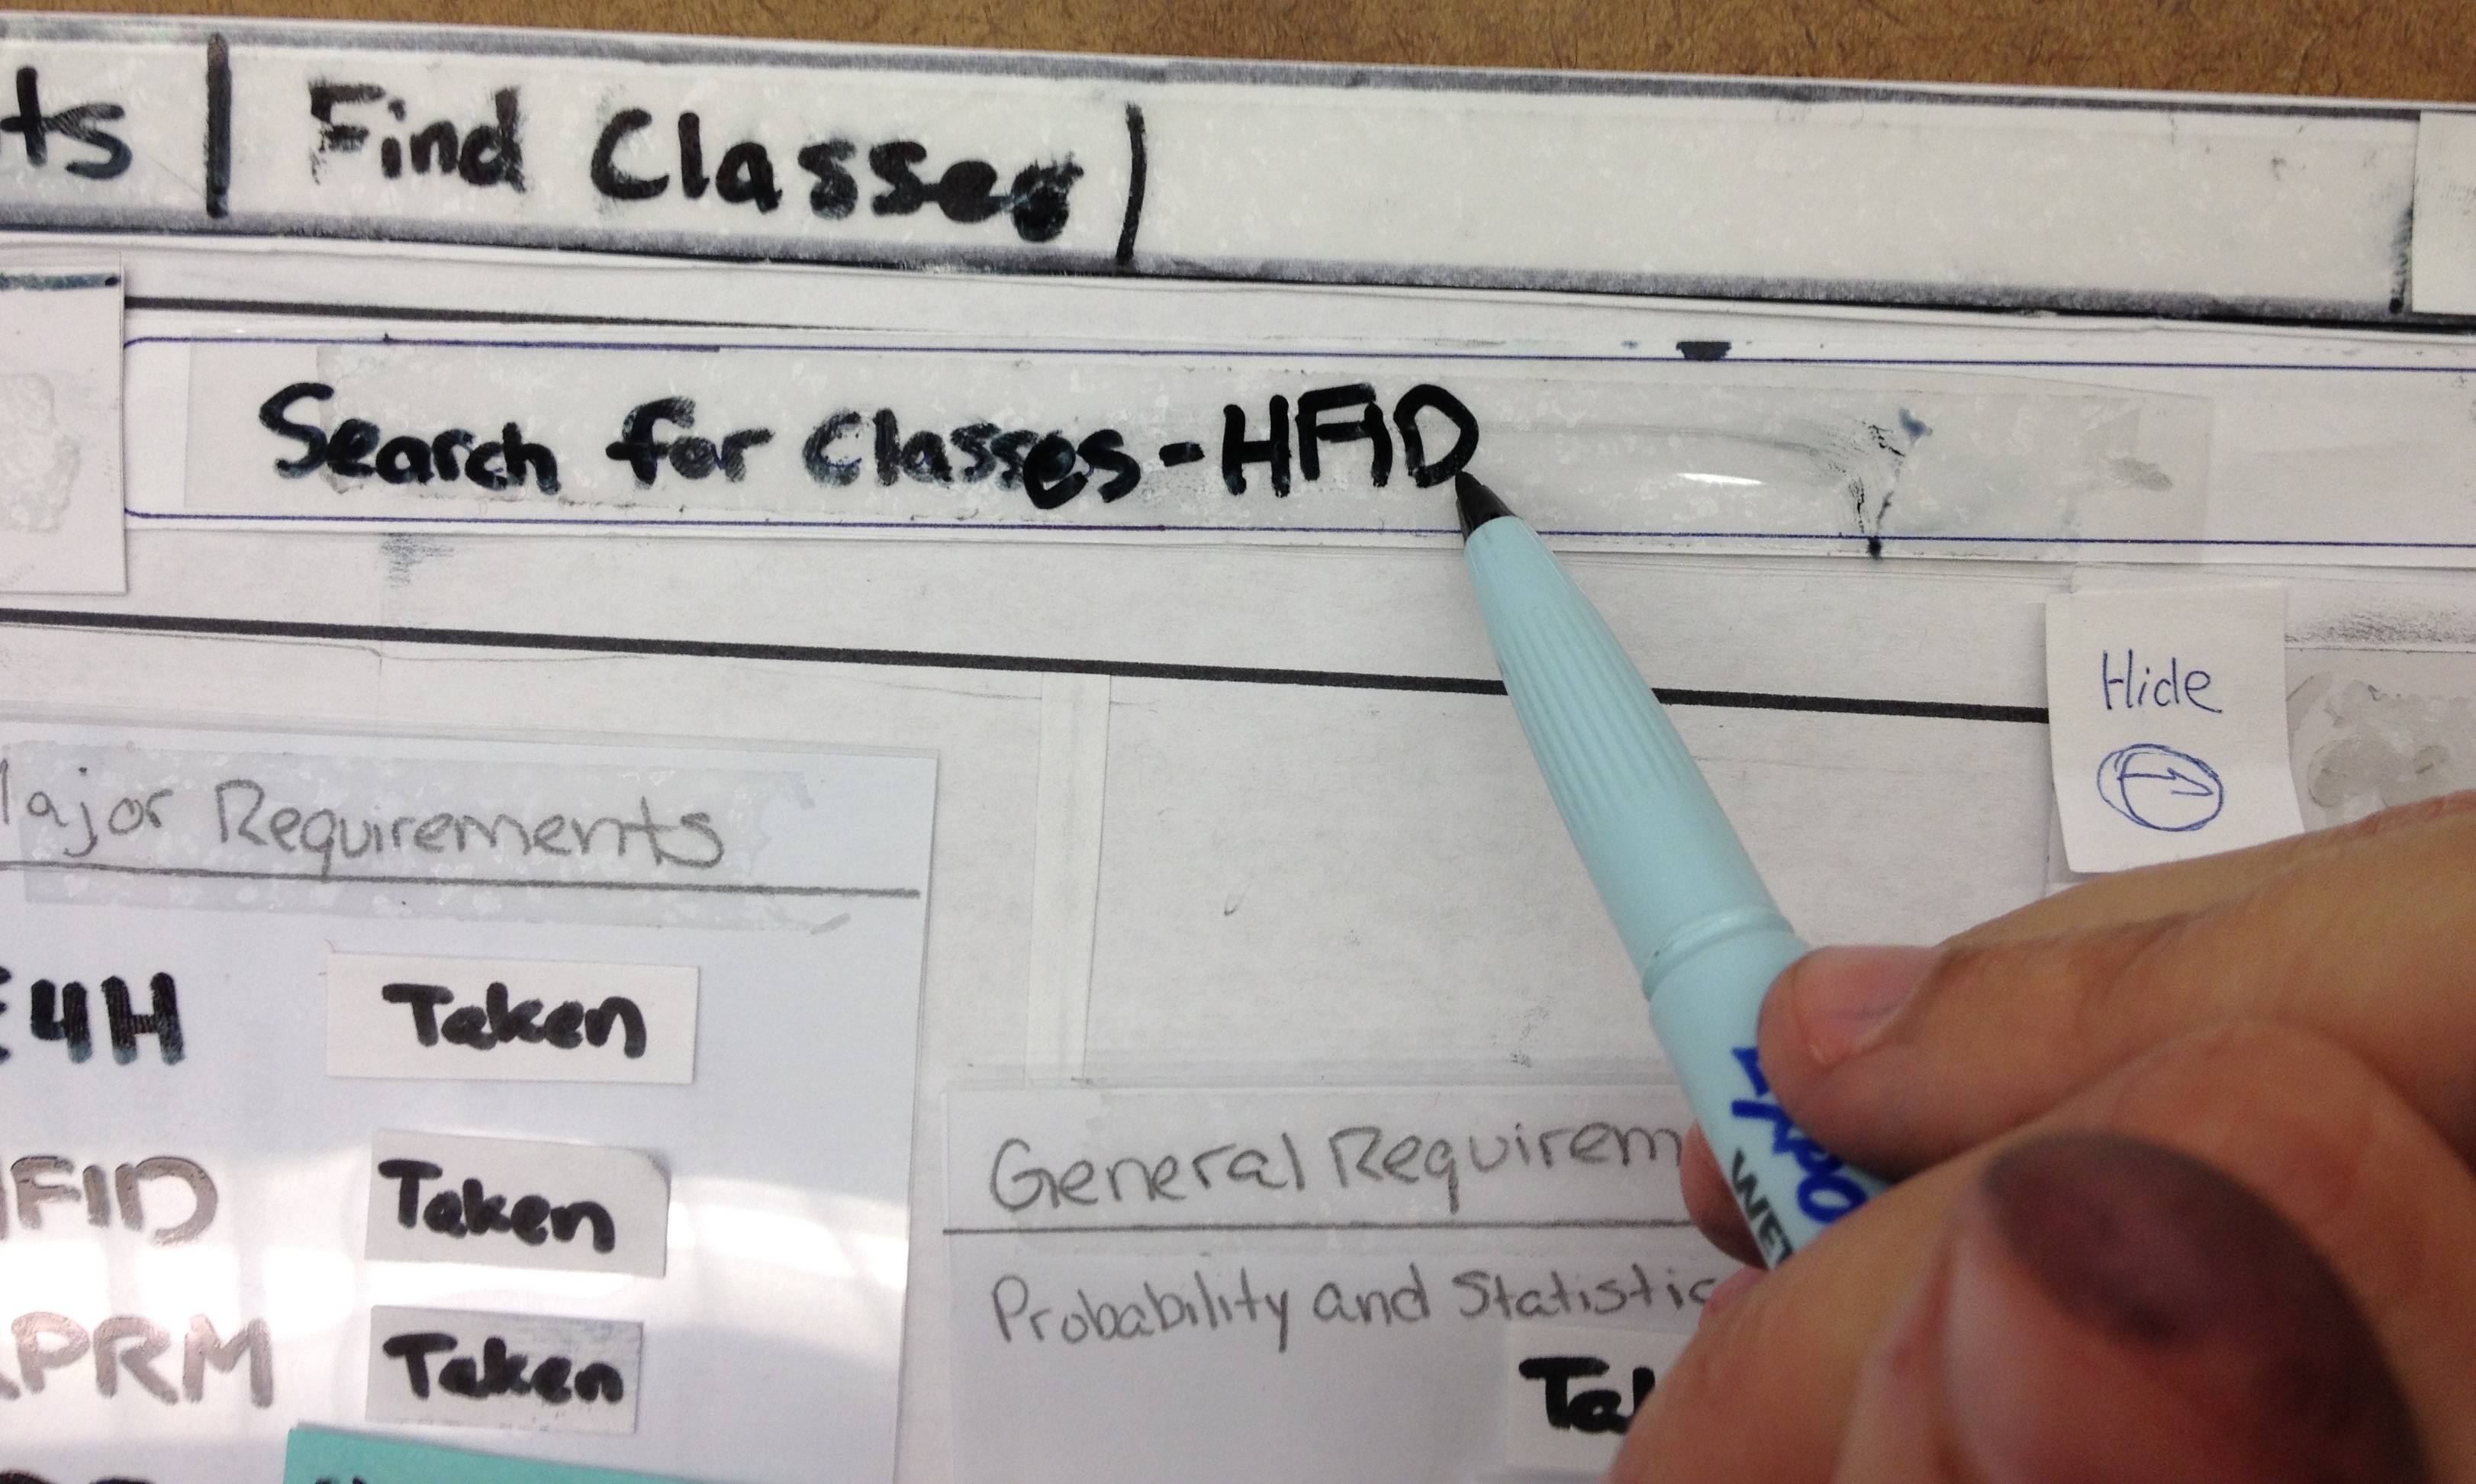 ts | Find Classes |
Search for Classes - HFID
Hide
Major Requirements
E4H Taken
HFID Taken
PRM Taken
General Requirem
Probability and Statistic
Tak
WET